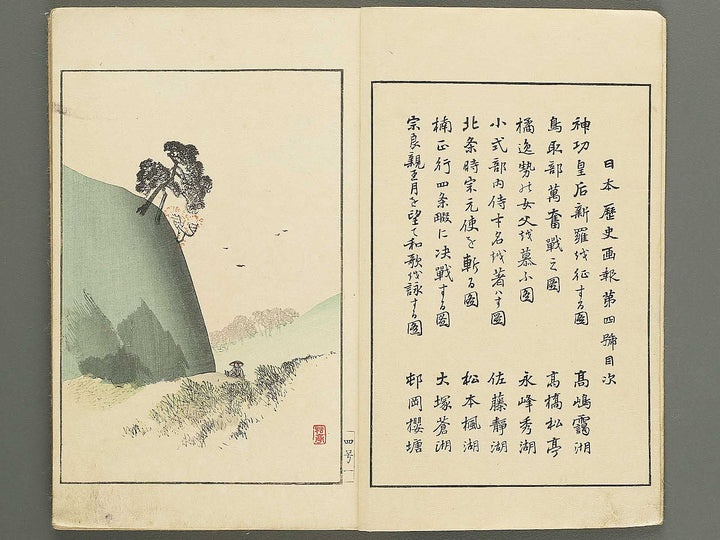 日本歴史画報第四號目次
神功皇后新羅を征する圖 高嶋靄湖
鳥取部萬奮戰之圖 高橋松亭
橘逸勢の女父を慕ふ圖 永峰秀湖
小式部内侍才名を著はす圖 佐藤靜湖
北条時宗元使を斬る圖 松本楓湖
楠正行四条畷に决戰する圖 大塚蒼湖
宗良親王月を望て和歌を詠する圖 邨岡櫻塘
四号